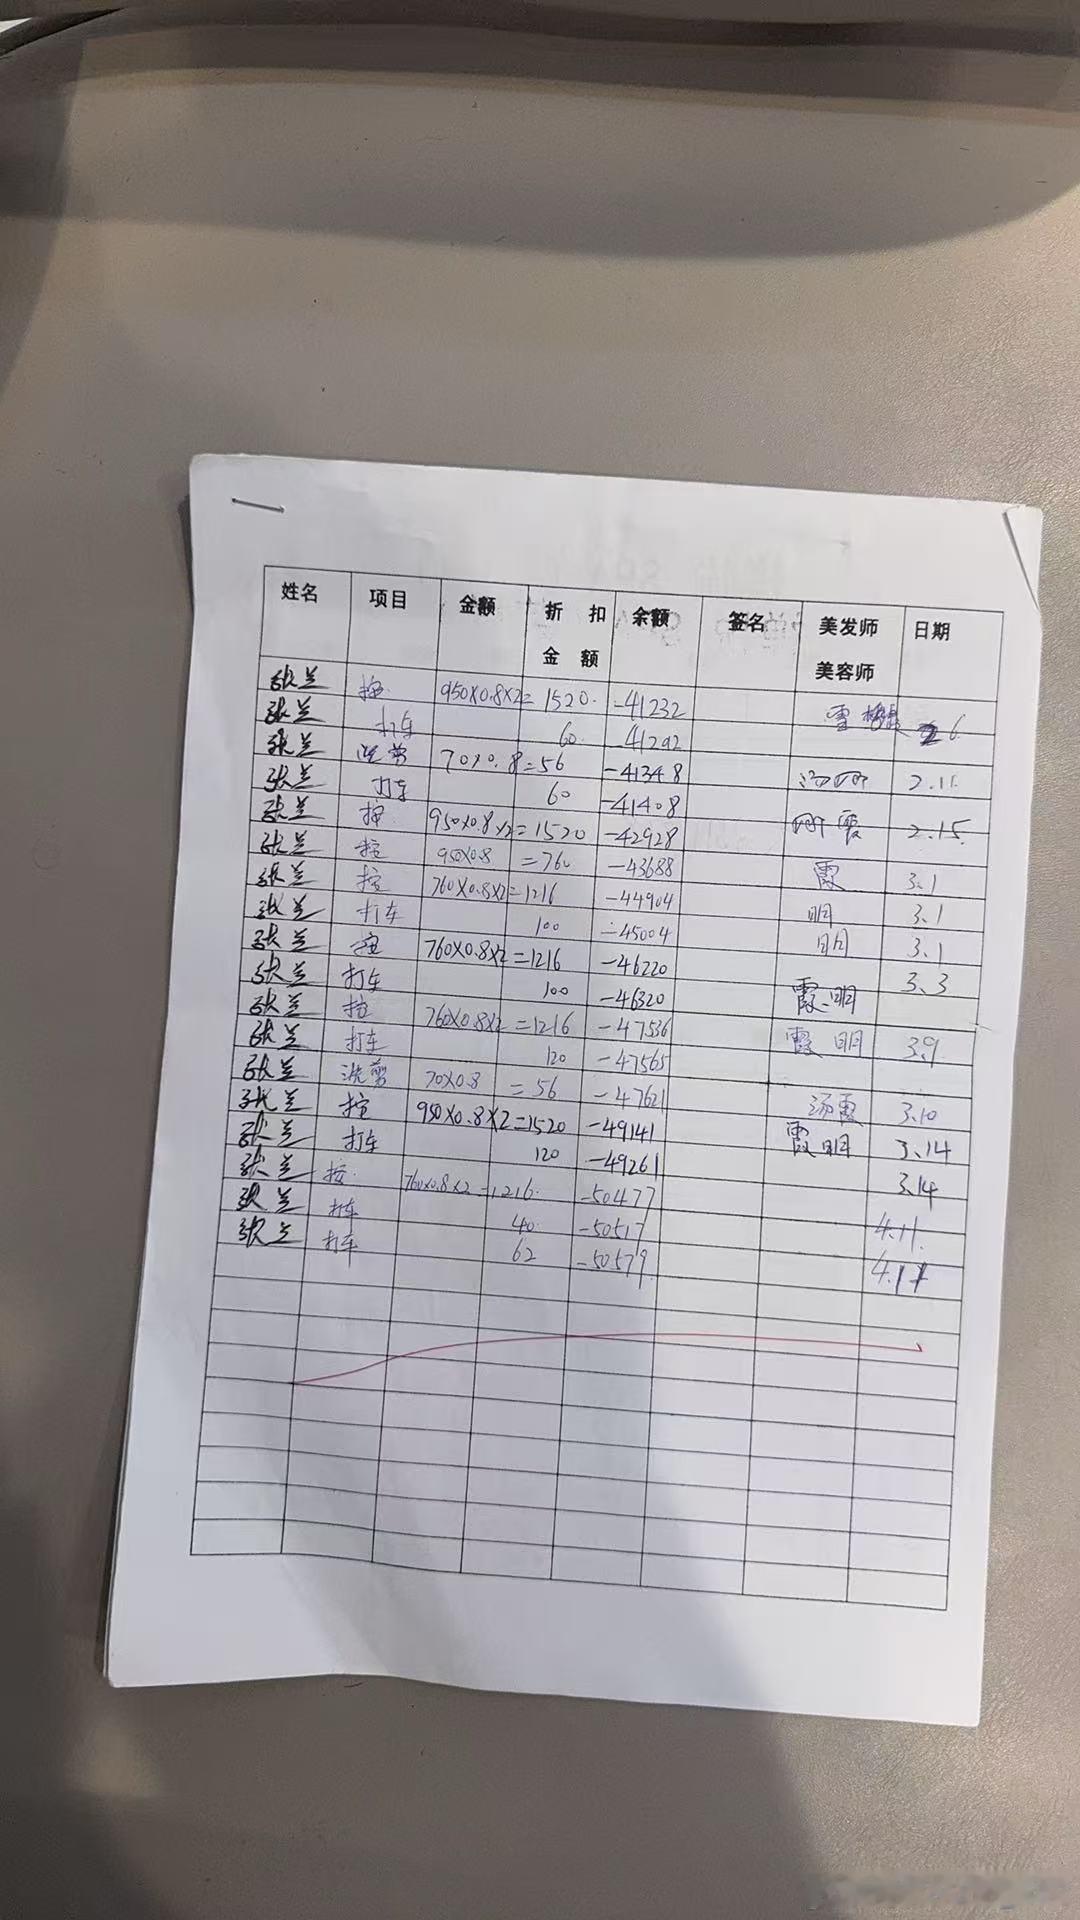 姓名 项目 金额 折扣金额 余额 签名 美发师美容师 日期
张兰 按 950×0.8×2= 1520 -41232 6
张兰 打车 60 41292
张兰 洗剪 70×0.8 =56 -41348 2.11
张兰 打车 60 -41408
张兰 按 950×0.8×2 =1520 -42928 霞 2.15
张兰 按 950×0.8 =760 -43688 霞 3.1
张兰 按 760×0.8×2 =1216 -44904 明 3.1
张兰 打车 100 -45004 明 3.1
张兰 按 760×0.8×2 =1216 -46220 3.3
张兰 打车 100 -46320 霞.明
张兰 按 760×0.8×2 =1216 -47536 霞 明 3.9
张兰 打车 120 -47565
张兰 洗剪 70×0.8 =56 -47621 汤霞 3.10
张兰 按 950×0.8×2 =1520 -49141 霞明 3.14
张兰 打车 120 -49261 3.14
张兰 按 760×0.8×2 =1216 -50477 4.11
张兰 打车 40 -50517
张兰 打车 62 -50579 4.11